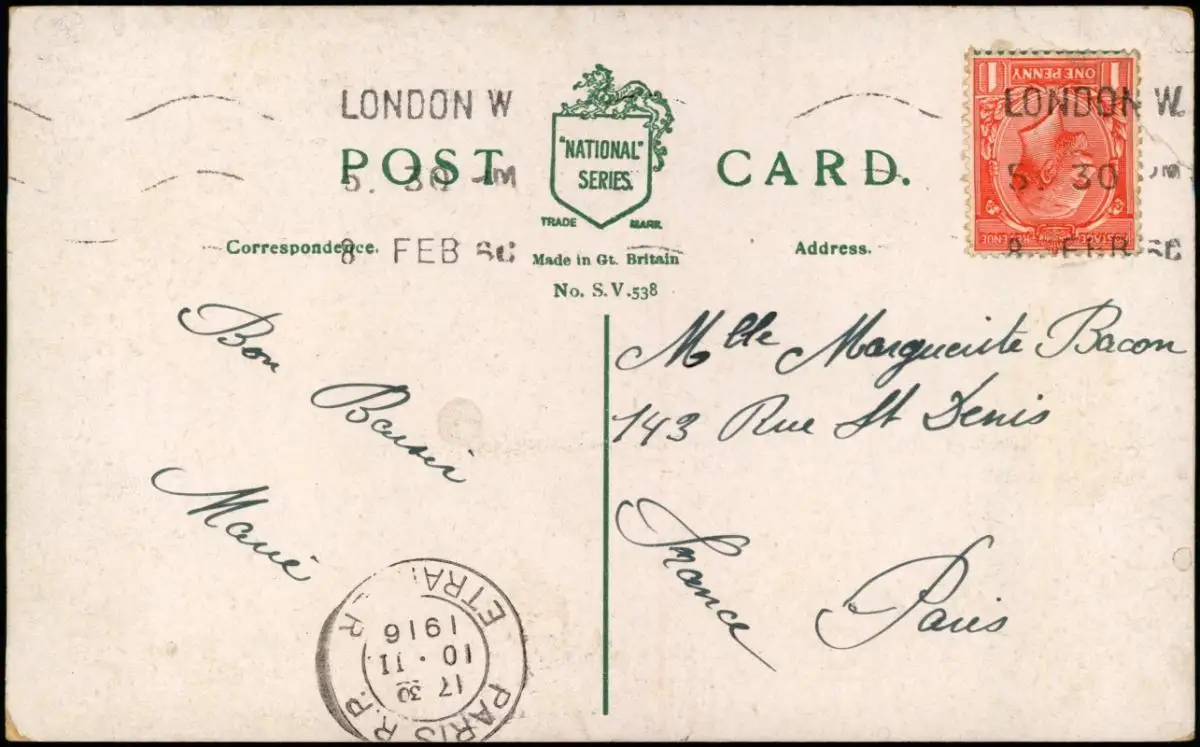 LONDON W
LONDON W.
ONE PENNY
1 1
POST CARD.
"NATIONAL"
SERIES.
5. 30 PM
5. 30 PM
TRADE MARK.
POSTAGE REVENUE
8 FEB
8 FEB
Correspondence.
Made in Gt. Britain
Address.
No. S.V.538
Bon
Baiser
Marie
Mlle Marguerite Bacon
143 Rue St Denis
France
Paris
PARIS R.P. ETRANGER
17 30
10 . II
1916